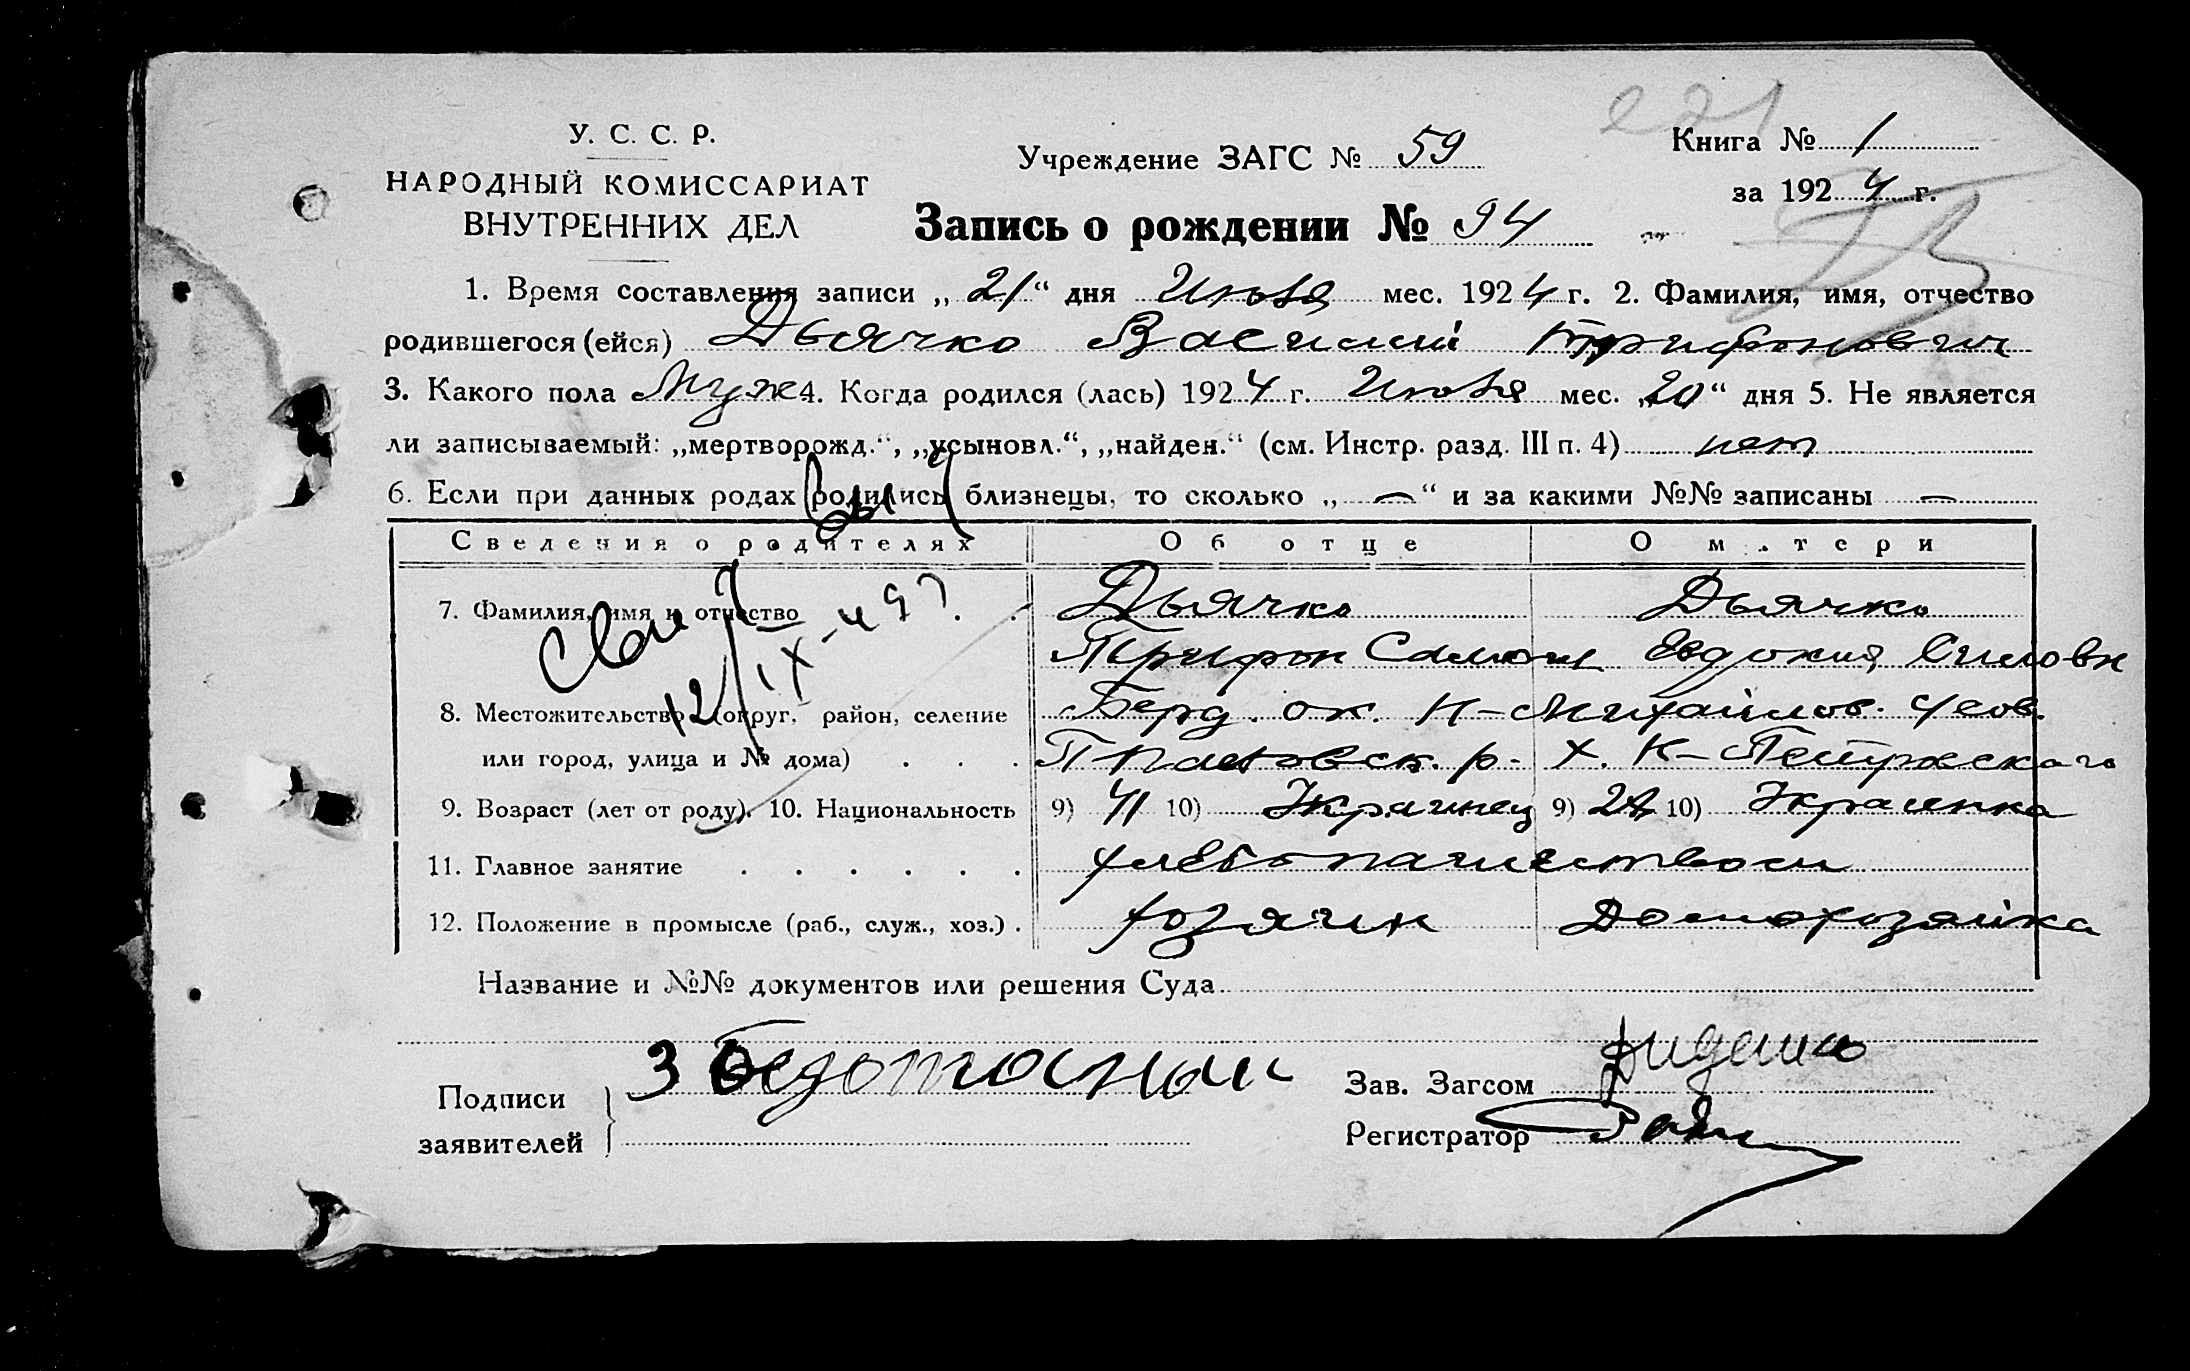 221
У. С. С. Р.
НАРОДНЫЙ КОМИССАРИАТ
ВНУТРЕННИХ ДЕЛ
Учреждение ЗАГС № 59
Книга № 1
за 1924 г.
Запись о рождении № 94
1. Время составления записи „21“ дня Июля мес. 1924 г. 2. Фамилия, имя, отчество
родившегося (ейся) Дьячко Василий Трифонович
3. Какого пола Муж 4. Когда родился (лась) 1924 г. Июля мес. „20“ дня 5. Не является
ли записываемый: „мертворожд.“, „усыновл.“, „найден.“ (см. Инстр. разд. III п. 4) нет
6. Если при данных родах родились близнецы, то сколько „—“ и за какими №№ записаны —
Сведения о родителях Об отце О матери
7. Фамилия, имя и отчество Дьячко Дьячко
Трифон Самои Евдокия Силовн
8. Местожительство (округ, район, селение Берд. ок. Н-Михайлов.
или город, улица и № дома) р. х. К-Петровского
9. Возраст (лет от роду). 10. Национальность 9) 41 10) Украинец 9) 10) Украинка
11. Главное занятие хлебопашеством
12. Положение в промысле (раб., служ., хоз.) хозяин Домохозяйка
Название и №№ документов или решения Суда
Подписи
заявителей
Зав. Загсом Диденко
Регистратор